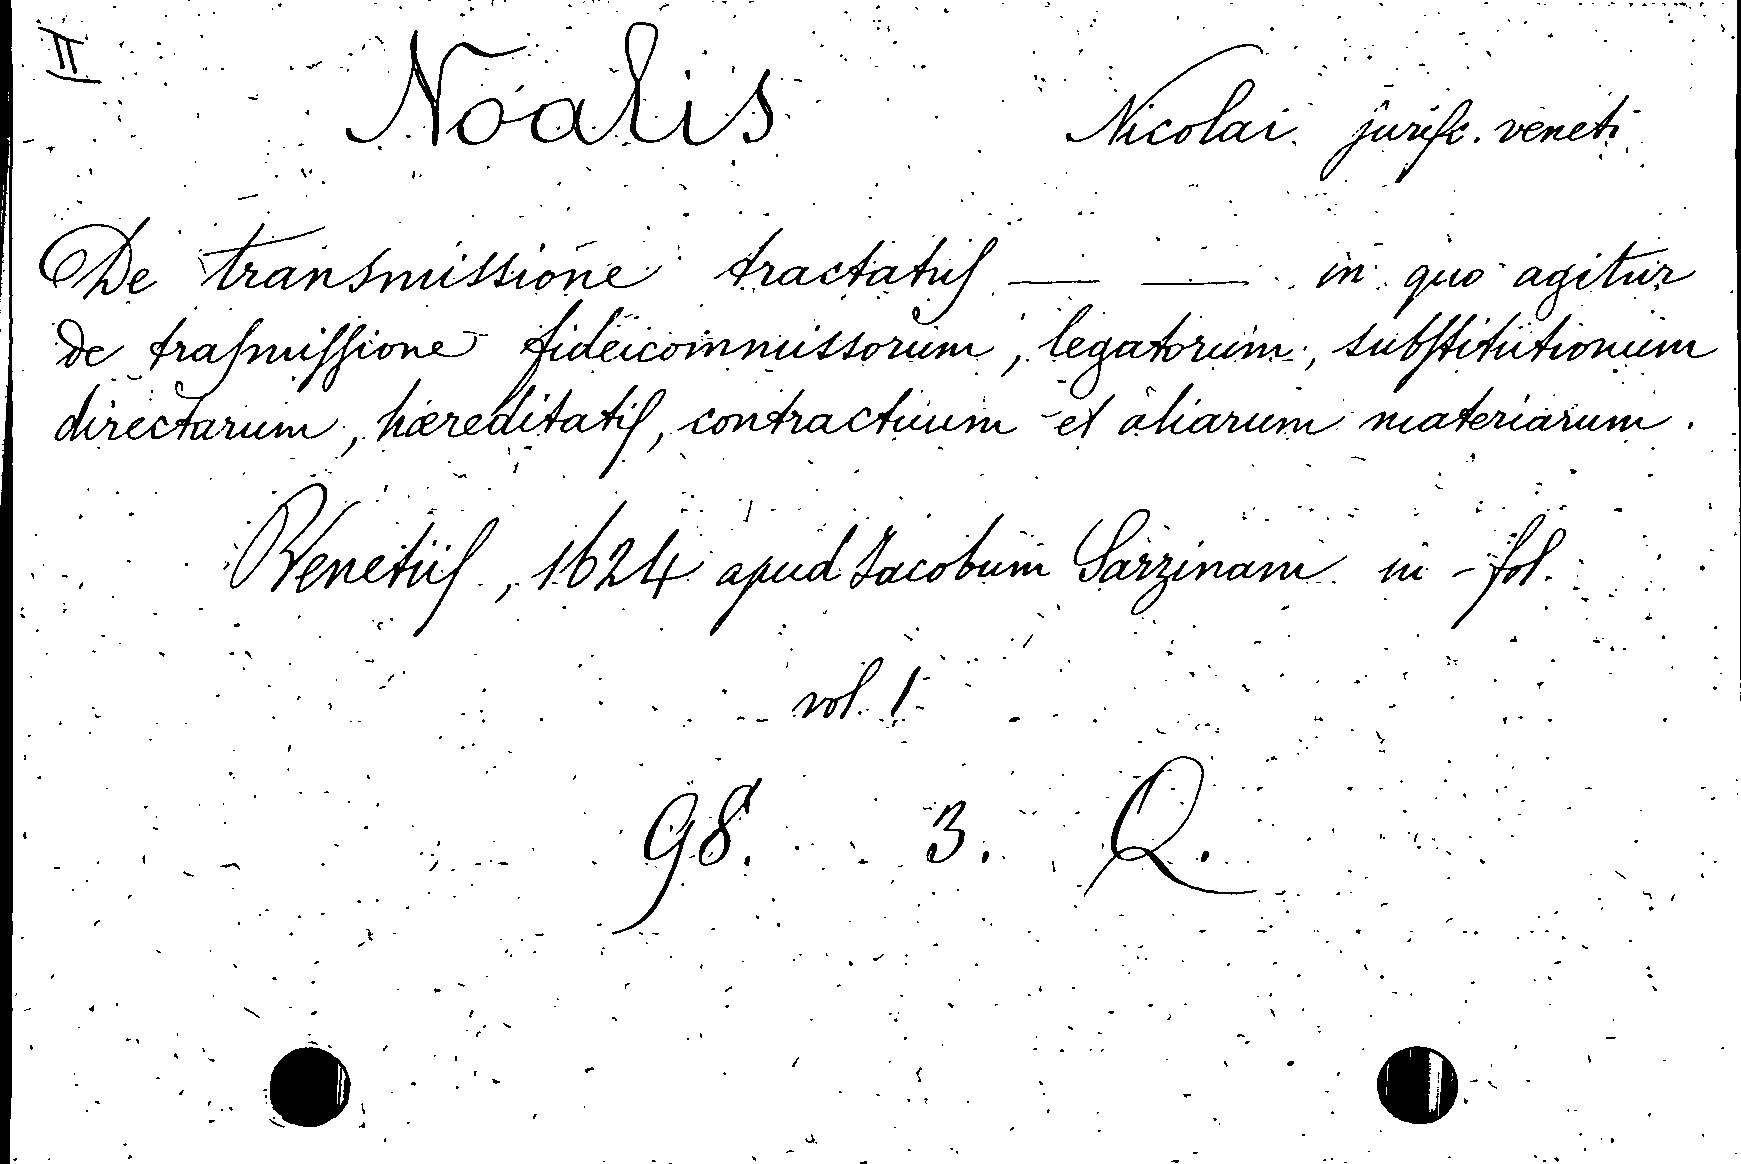 II
Noalis Nicolai jurisc. veneti
De transmissione tractatus — — in quo agitur
de trasmissione fideicommissorum, legatorum, substitutionum
directarum, hæreditatis, contractuum et aliarum materiarum.
Venetiis, 1624 apud Jacobum Sarzinam in-fol.
vol. 1
98. 3. Q.